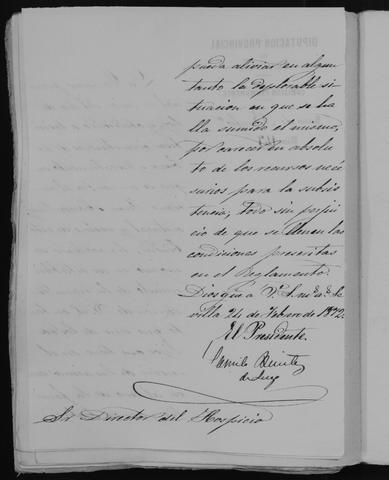 pueda aliviar en algun
tanto la deplorable si
tuacion en que se ha
lla sumido el mismo,
por carecer en absolu
to de los recursos nece
sarios para la subsis
tencia; todo sin perjui
cio de que se llenen las
condiciones prescritas
en el Reglamento.
Dios gue a V. S. ms. as. Se
villa 24 de Febrero de 1872.
El Presidente,
Camilo Benitez
de Lugo
Sr Director del Hospicio